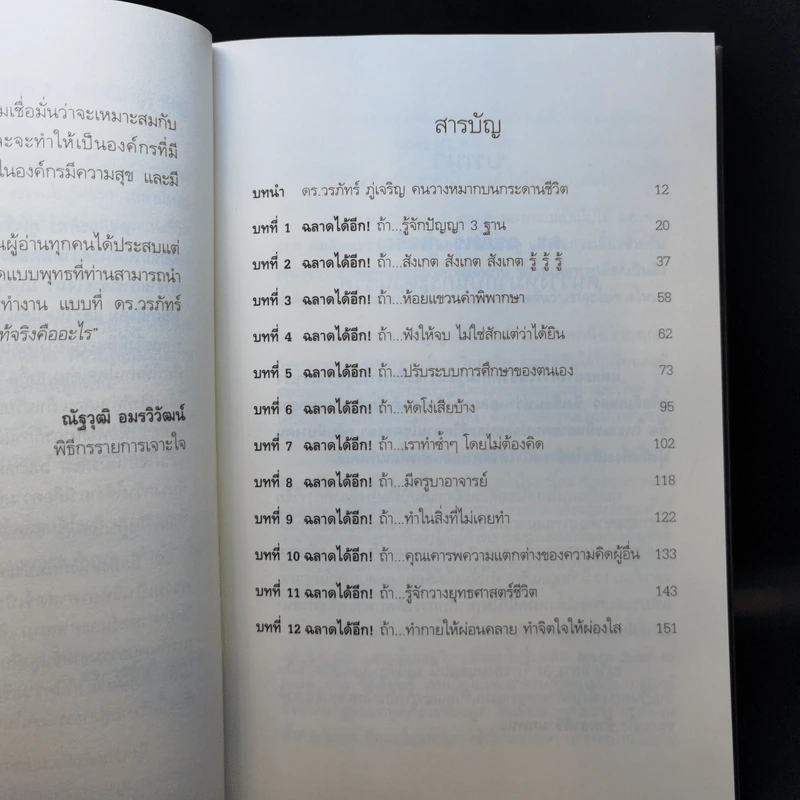 มเชื่อมั่นว่าจะเหมาะสมกับ
ละจะทำให้เป็นองค์กรที่มี
ในองค์กรมีความสุข และมี
นผู้อ่านทุกคนได้ประสบแต่
ดแบบพุทธที่ท่านสามารถนำ
ทำงาน แบบที่ ดร.วรภัทร์
ท้จริงคืออะไร"
ณัฐวุฒิ อมรวิวัฒน์
พิธีกรรายการเจาะใจ
สารบัญ
บทนำ ดร.วรภัทร์ ภู่เจริญ คนวางหมากบนกระดานชีวิต 12
บทที่ 1 ฉลาดได้อีก! ถ้า...รู้จักปัญญา 3 ฐาน 20
บทที่ 2 ฉลาดได้อีก! ถ้า...สังเกต สังเกต สังเกต รู้ รู้ รู้ 37
บทที่ 3 ฉลาดได้อีก! ถ้า...ห้อยแขวนคำพิพากษา 58
บทที่ 4 ฉลาดได้อีก! ถ้า...ฟังให้จบ ไม่ใช่สักแต่ว่าได้ยิน 62
บทที่ 5 ฉลาดได้อีก! ถ้า...ปรับระบบการศึกษาของตนเอง 73
บทที่ 6 ฉลาดได้อีก! ถ้า...หัดโง่เสียบ้าง 95
บทที่ 7 ฉลาดได้อีก! ถ้า...เราทำซ้ำๆ โดยไม่ต้องคิด 102
บทที่ 8 ฉลาดได้อีก! ถ้า...มีครูบาอาจารย์ 118
บทที่ 9 ฉลาดได้อีก! ถ้า...ทำในสิ่งที่ไม่เคยทำ 122
บทที่ 10 ฉลาดได้อีก! ถ้า...คุณเคารพความแตกต่างของความคิดผู้อื่น 133
บทที่ 11 ฉลาดได้อีก! ถ้า...รู้จักวางยุทธศาสตร์ชีวิต 143
บทที่ 12 ฉลาดได้อีก! ถ้า...ทำกายให้ผ่อนคลาย ทำจิตใจให้ผ่องใส 151